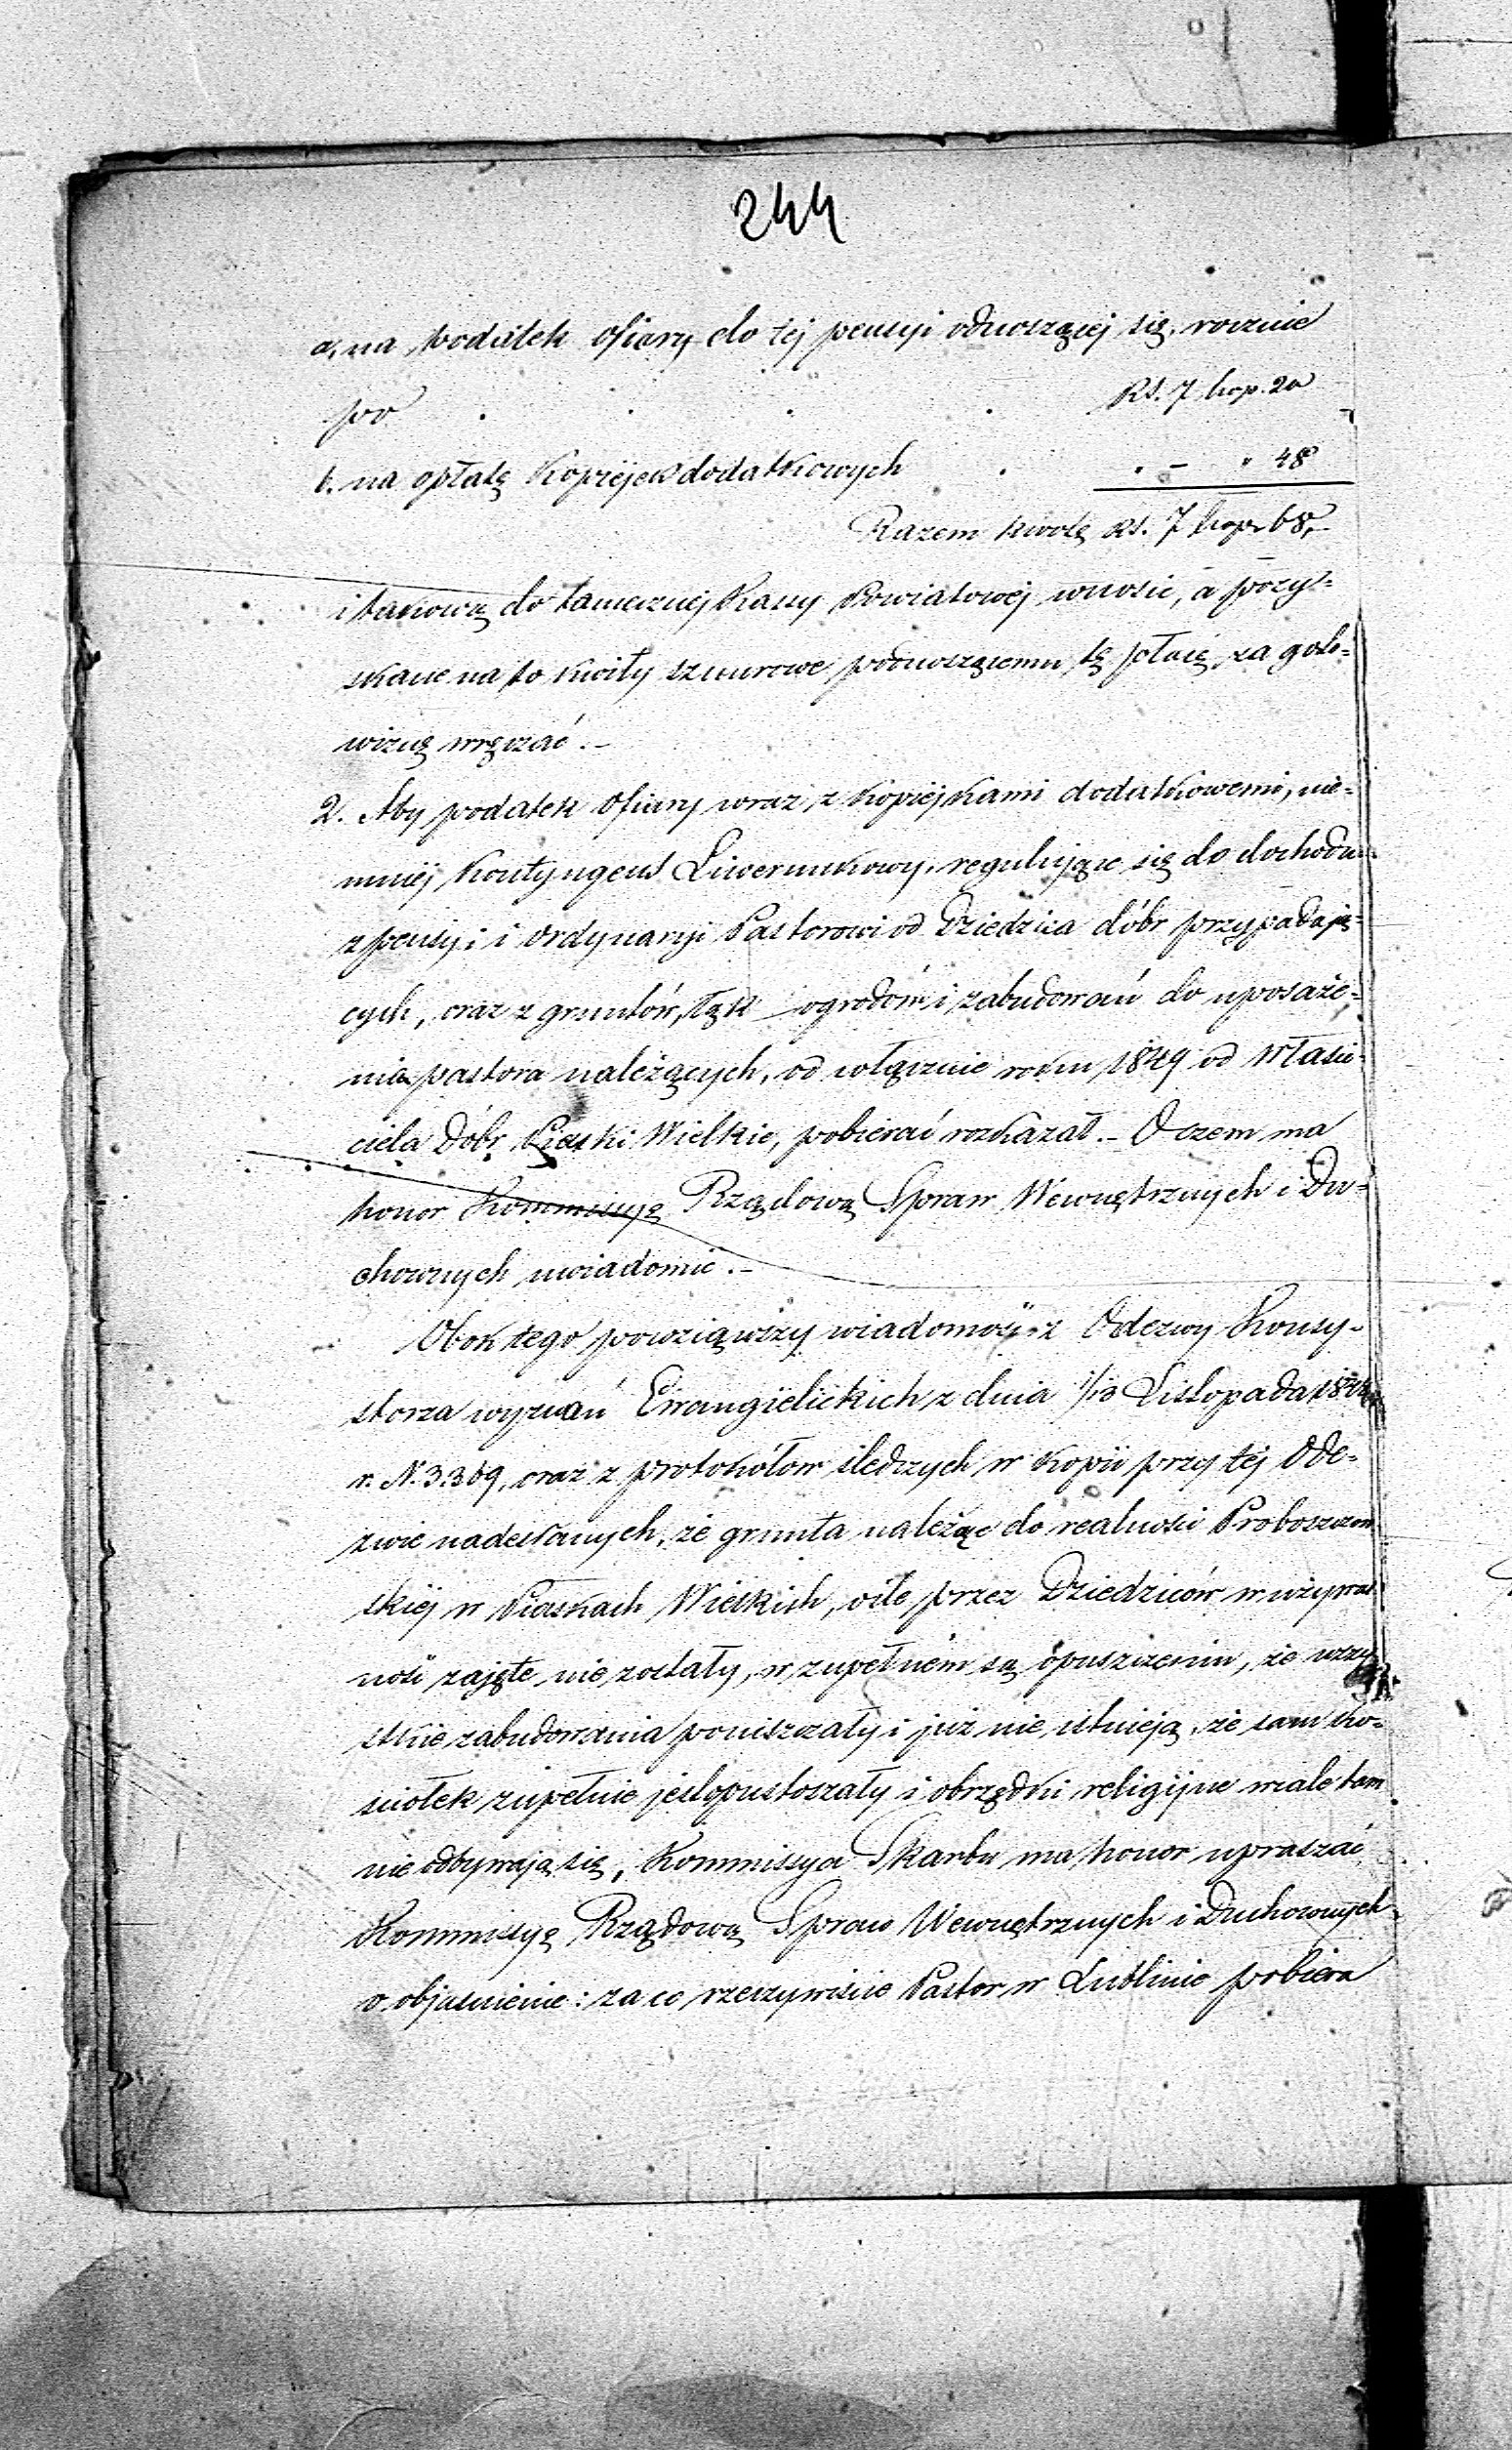 244
a, na podatek ofiary do tej pensyi odnoszącej się, rocznie
po . . . . Rs. 7 kop. 20
b. na opłatę kopiejek dodatkowych . . – " 48
Razem kwotę Rs. 7 kop. 68,
i takową do tamecznej Kassy Powiatowej wnosić, a pozy-
skane na to kwity sznurowe podnoszącemu tę płacę za goto-
wiznę wręczać. –
2. Aby podatek ofiary wraz z kopiejkami dodatkowemi, nie-
mniéj kontyngens Liwerunkowy, regulujące się do dochodu
z pensyi i ordynaryi Pastorowi od Dziedzica dóbr przypadają-
cych, oraz z gruntów, łąk ogrodów i zabudowań do uposaże-
nia pastora należących, od włącznie roku 1849 od Właści-
ciela Dóbr Piaski Wielkie, pobierać rozkazał. – O czem ma
honor Kommissyą Rządową Spraw Wewnętrznych i Du-
chownych uwiadomić. –
Obok tego powziąwszy wiadomość z Odezwy Konsy-
storza wyznań Ewangielickich z dnia 1/13 Listopada
r. N. 3.369, oraz z protokółow śledczych w kopii przy téj Ode-
zwie nadesłanych, że grunta należące do realności Proboszczow
skiéj w Piaskach Wielkich, o ile przez Dziedziców w używal
ność zajęte nie zostały, w zupełném są opuszczeniu, że wszy
stkie zabudowania poniszczały i już nie istnieją, że sam ko-
ściołek zupełnie jest opustoszały i obrządki religijne wcale tam
nie odbywają się, Kommissya Skarbu ma honor upraszać
Kommissyą Rządową Spraw Wewnętrznych i Duchownych
o objaśnienie: za co rzeczywiście Pastor w Lublinie pobiera